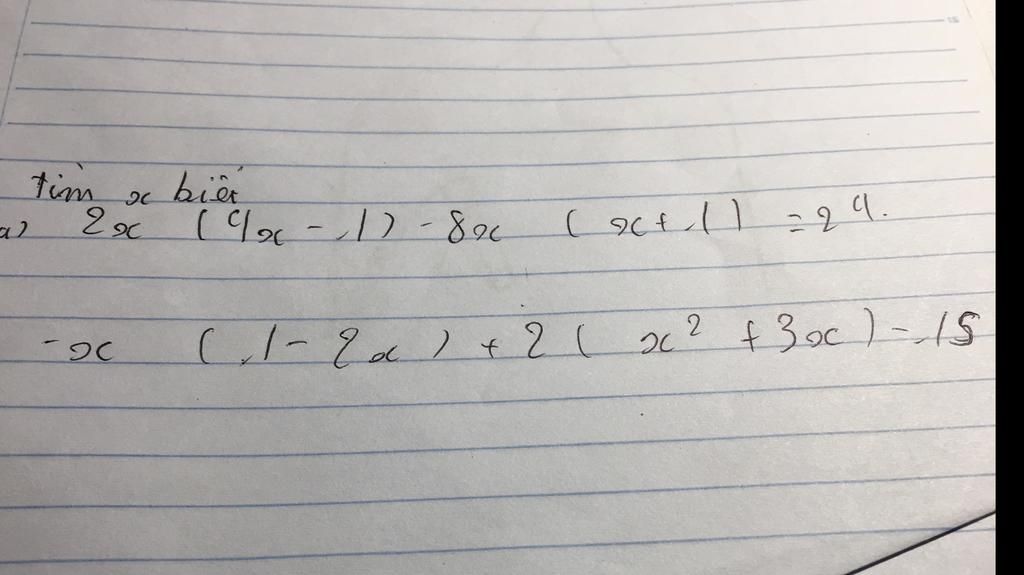 tìm x biết
a) 2x (4x - 1) - 8x (x + 1) = 24.
- x (1 - 2x) + 2 (x² + 3x) - 15